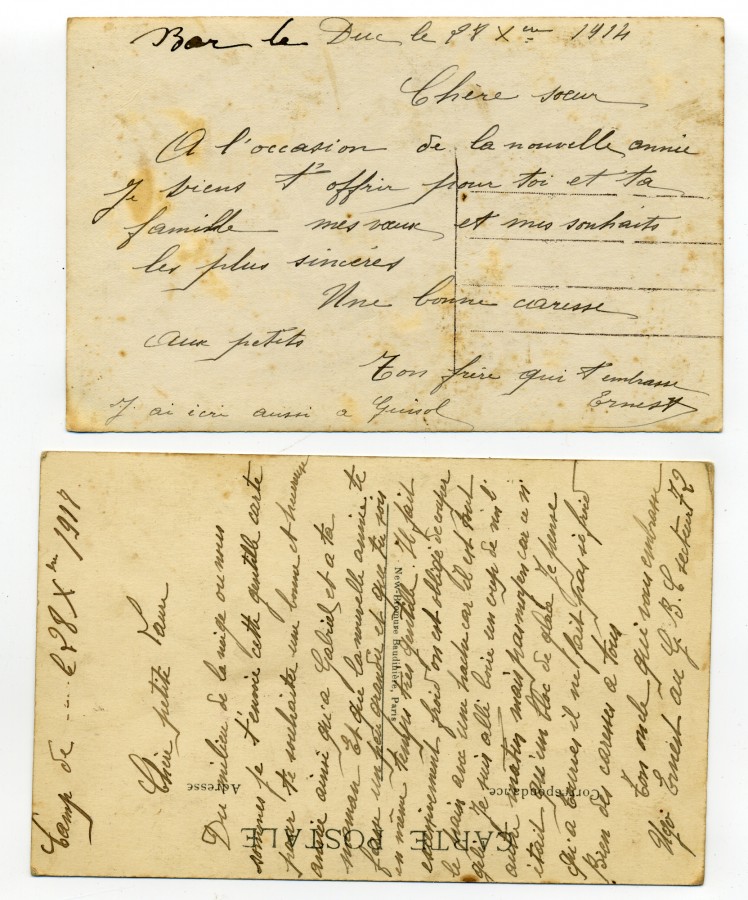 Bar le Duc le 28 Xbre 1914
Chère sœur
A l'occasion de la nouvelle année
Je viens t'offrir pour toi et ta
famille mes vœux et mes souhaits
les plus sincéres
Une bonne caresse
aux petits
Ton frère qui t'embrasse
Ernest
J'ai icri aussi a Guisol
Camp de ... le 28 Xbre 1917
Chère petite Laure
Du milieu de la neige ou nous
sommes je t'envoie cette gentille carte
pour te souhaiter une bonne et heureuse
année ainsi qu'a Gabriel et a ta
maman Et que la nouvelle année te
fasse un peu grandir et que tu sois
en même temps très gentille. Il fait
enormement froid on est obligé de couper
le pain avec une hache car il est tout
gelé Je suis allé boire un coup de vin l'
autre matin mais pas moyen car ce n'
était qu'un bloc de glace Je pense
qu'a il ne fait pas si froid
Bien des caresses a tous
Ton oncle qui vous embrasse
Ernest au G. B. C secteur 72
CARTE POSTALE
Correspondance
Adresse
New-Bromure Baudinière, Paris